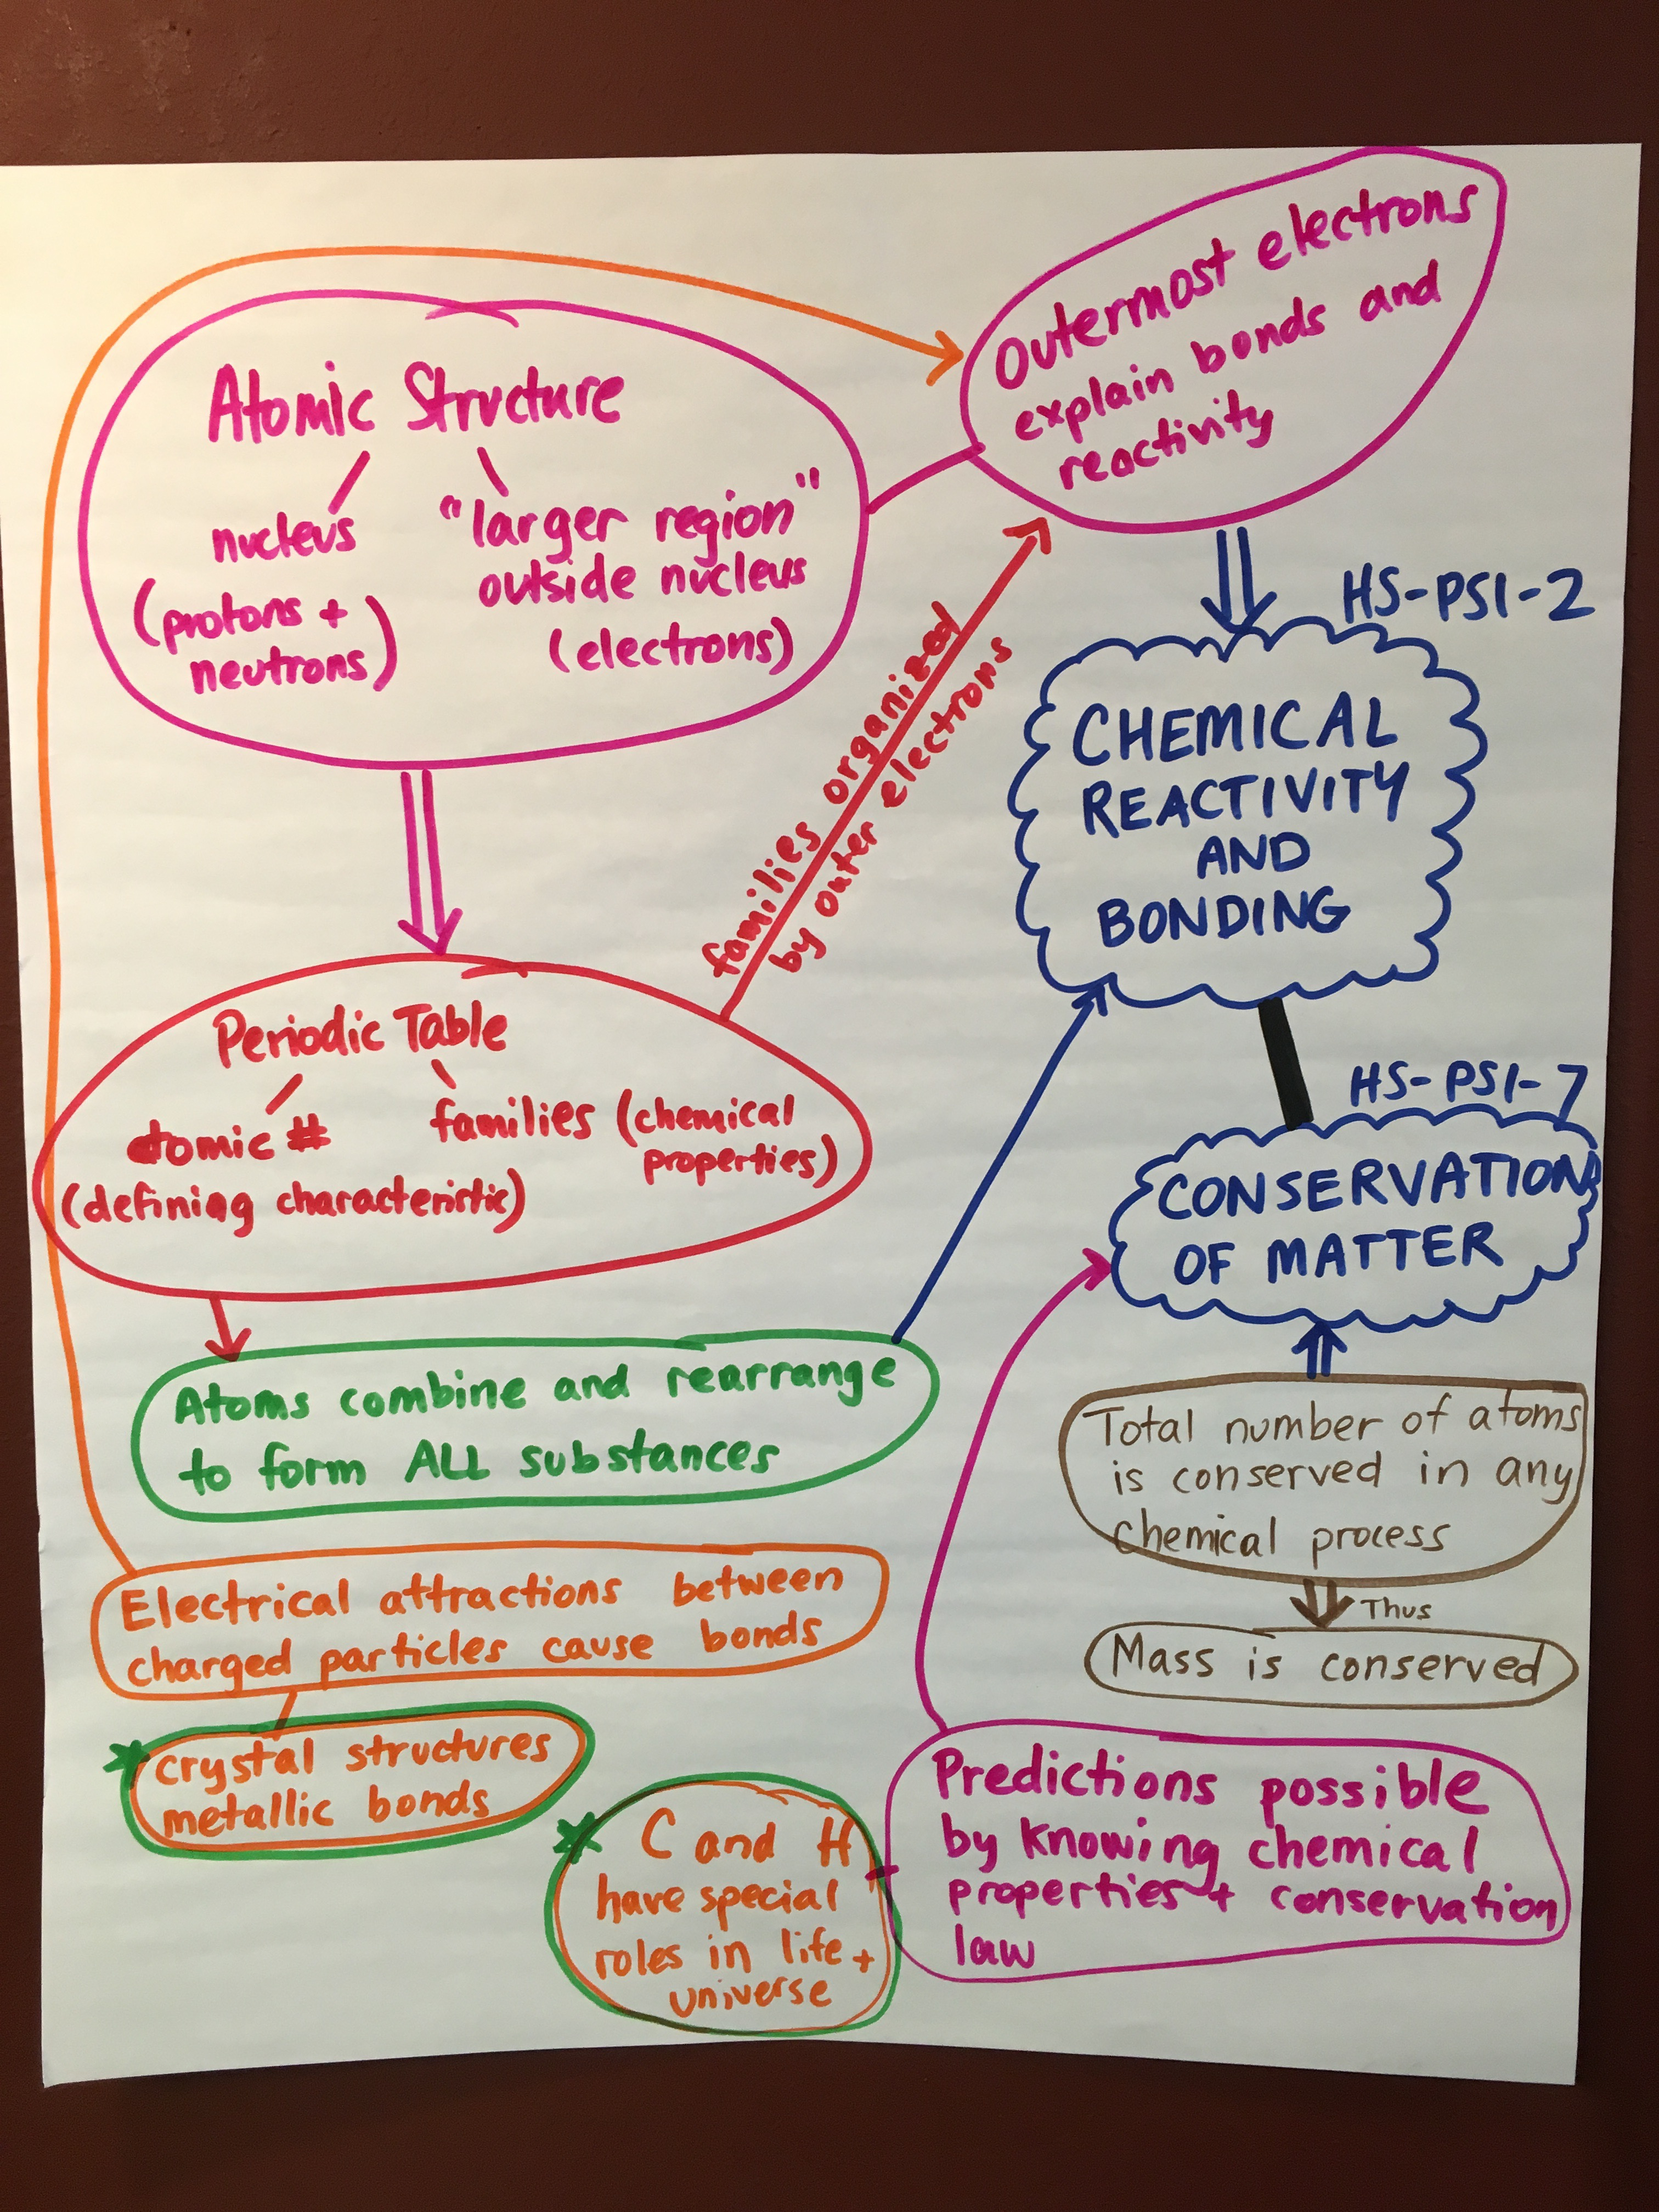 Outermost electrons
explain bonds and
reactivity
Atomic Structure
nucleus
(protons +
neutrons)
"larger region"
outside nucleus
(electrons)
families organized
by outer electrons
HS-PS1-2
CHEMICAL
REACTIVITY
AND
BONDING
Periodic Table
atomic #
(defining characteristic)
families (chemical
properties)
HS-PS1-7
CONSERVATION
OF MATTER
Atoms combine and rearrange
to form ALL substances
Total number of atoms
is conserved in any
chemical process
Thus
Mass is conserved
Electrical attractions between
charged particles cause bonds
crystal structures
metallic bonds
C and H
have special
roles in life +
universe
Predictions possible
by knowing chemical
properties + conservation
law